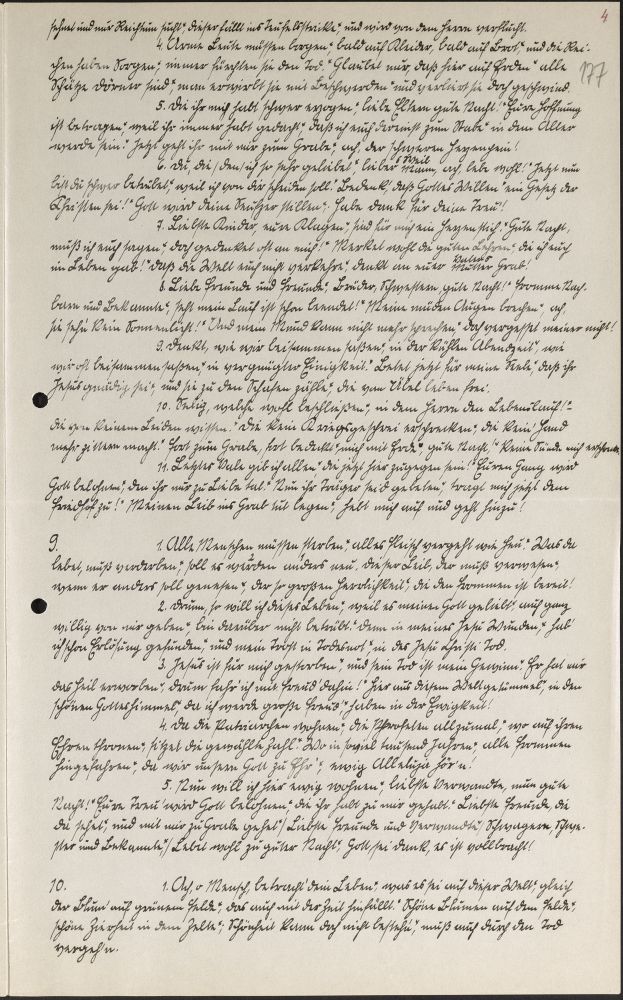 4
177
sehnet und nur Reichtum sucht," dieser fällt ins Teufelsstricke," und wird von dem Herrn verflucht.
4. Arme Leute müssen borgen," bald auch Kleider, bald auch Brot", und die Rei-
chen haben Sorgen," immer fürchten sie den Tod." Glaubet nur, daß hier auf Erden" alle
Schätze Dörner sind", man erwirbt sie mit Beschwerden" und verliert sie doch geschwind.
5. Die ihr mich habt schwer erzogen," liebe Eltern gute Nacht!" Eure Hoffnung
ist betrogen," weil ihr immer habt gedacht," daß ich euch dereinst zum Stabe" in dem Alter
werde sein." Jetzt geht ihr mit mir zum Grabe," ach, der schweren Herzenspein!
6. Du, die (den) ich so sehr geliebet," lieber Mann, ach, lebe wohl!" Jetzt nun
Weib
bist du schwer betrübet," weil ich von dir scheiden soll." Bedenk, daß Gottes Willen" ein Gesetz der
Christen sei!" Gott wird deine Seufzer stillen," habe Dank für deine Treu!
7. Liebste Kinder, eure Klagen," sind für mich ein Herzenstich." Gute Nacht,
muß ich euch sagen," doch gedenket oft an mich!" Merket wohl die guten Lehren," die ich euch
im Leben gab!" daß die Welt euch nicht verkehre," denkt an euer Mutter Grab!
Vaters
8. Liebe Freunde und Freunde," Brüder, Schwestern, gute Nacht!" Fromme Nach-
barn und Bekannte," seht mein Lauf ist schon beendet!" Meine müden Augen brechen," ach,
sie sehn kein Sonnenlicht!" Und mein Mund kann nicht mehr sprechen," doch vergesset meiner nicht!
9. Denkt, wie wir beisammen saßen," in der kühlen Abendzeit", wie
wir oft beisammen saßen," in vergnügter Einigkeit." Betet jetzt für meine Seele," daß ihr
Jesus gnädig sei," und sie zu den Schafen zähle," die vom Übel leben frei.
10. Selig, welche wohl beschließen," in dem Herrn den Lebenslauf!"
die von keinem Leiden wissen." die kein Kriegsgeschrei erschrecken," die kein Hand
mehr zittern macht." Fort zum Grabe, fort bedeckt mich mit Erde," gute Nacht," keine Sünde mich erschrecke.
11. Letzter Vale gib ich allen," die jetzt hier zugegen sein!" Euren Gang wird
Gott belohnen," den ihr mir zu Liebe tat." Nun ihr Träger seid gebeten," tragt mich jetzt dem
Friedhof zu!" Meinen Leib ins Grab tut legen," hebt mich auf und geht hinzu!
9.
1. Alle Menschen müssen sterben," alles Fleisch vergeht wie Heu." Was da
lebet, muß verderben," soll es werden anders neu. Dieser Leib, der muß verwesen,"
wenn er anders soll genesen," der so großen Herrlichkeit," die den Frommen ist bereit!
2. Drum, so will ich dieses Leben," weil es meinem Gott geliebt, auch ganz
willig von mir geben," bin darüber nicht betrübt." Denn in meines Jesu Wunden," hab'
ich schon Erlösung gefunden," und mein Trost in Todesnot" ist des Jesu Christi Tod.
3. Jesus ist für mich gestorben," und sein Tod ist mein Gewinn." Er hat mir
das Heil erworben," drum fahr' ich mit Freud' dahin!" Hier aus diesem Weltgetümmel," in den
schönen Gotteshimmel," da ich werde große Freud'" haben in der Ewigkeit!
4. Da die Patriarchen wohnen," die Propheten allzumal," wo auf ihren
Thronen thronen," sitzet die gewählte Zahl." Wo in soviel tausend Jahren," alle Frommen
hingefahren," da wir unserm Gott zu Ehr'," ewig Alleluja hör'n!
5. Nun will ich hier ewig wohnen," liebste Verwandte, nun gute
Nacht!" Eure Treu' wird Gott belohnen," die ihr habt zu mir gehabt." Liebste Freunde, die
da sehet," und mit mir zu Grabe gehet" (Liebste Freunde und Verwandte," Schwagern, Schwe-
ster und Bekannte,") Lebet wohl zu guter Nacht," Gott sei Dank, es ist vollbracht!
10.
1. Ach, o Mensch, betracht' dein Leben," was es sei auf dieser Welt," gleich
der Blum' auf grünem Felde," das auch mit der Zeit hinfällt." Schöne Blumen auf dem Felde,"
schöne Zierheit in dem Zelte," Schönheit kann doch nicht bestehn," muß auch durch den Tod
vergeh'n.